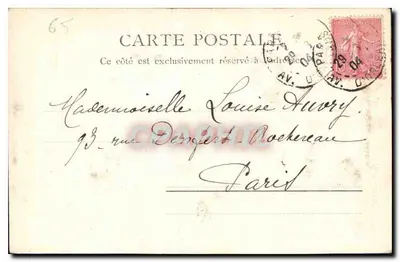 65
CARTE POSTALE
Ce côté est exclusivement réservé à l'adresse
PARIS
29
04
AV.
PARIS
29
04
AV.
Mademoiselle Louise Auvry
93 rue Denfert-Rochereau
Paris